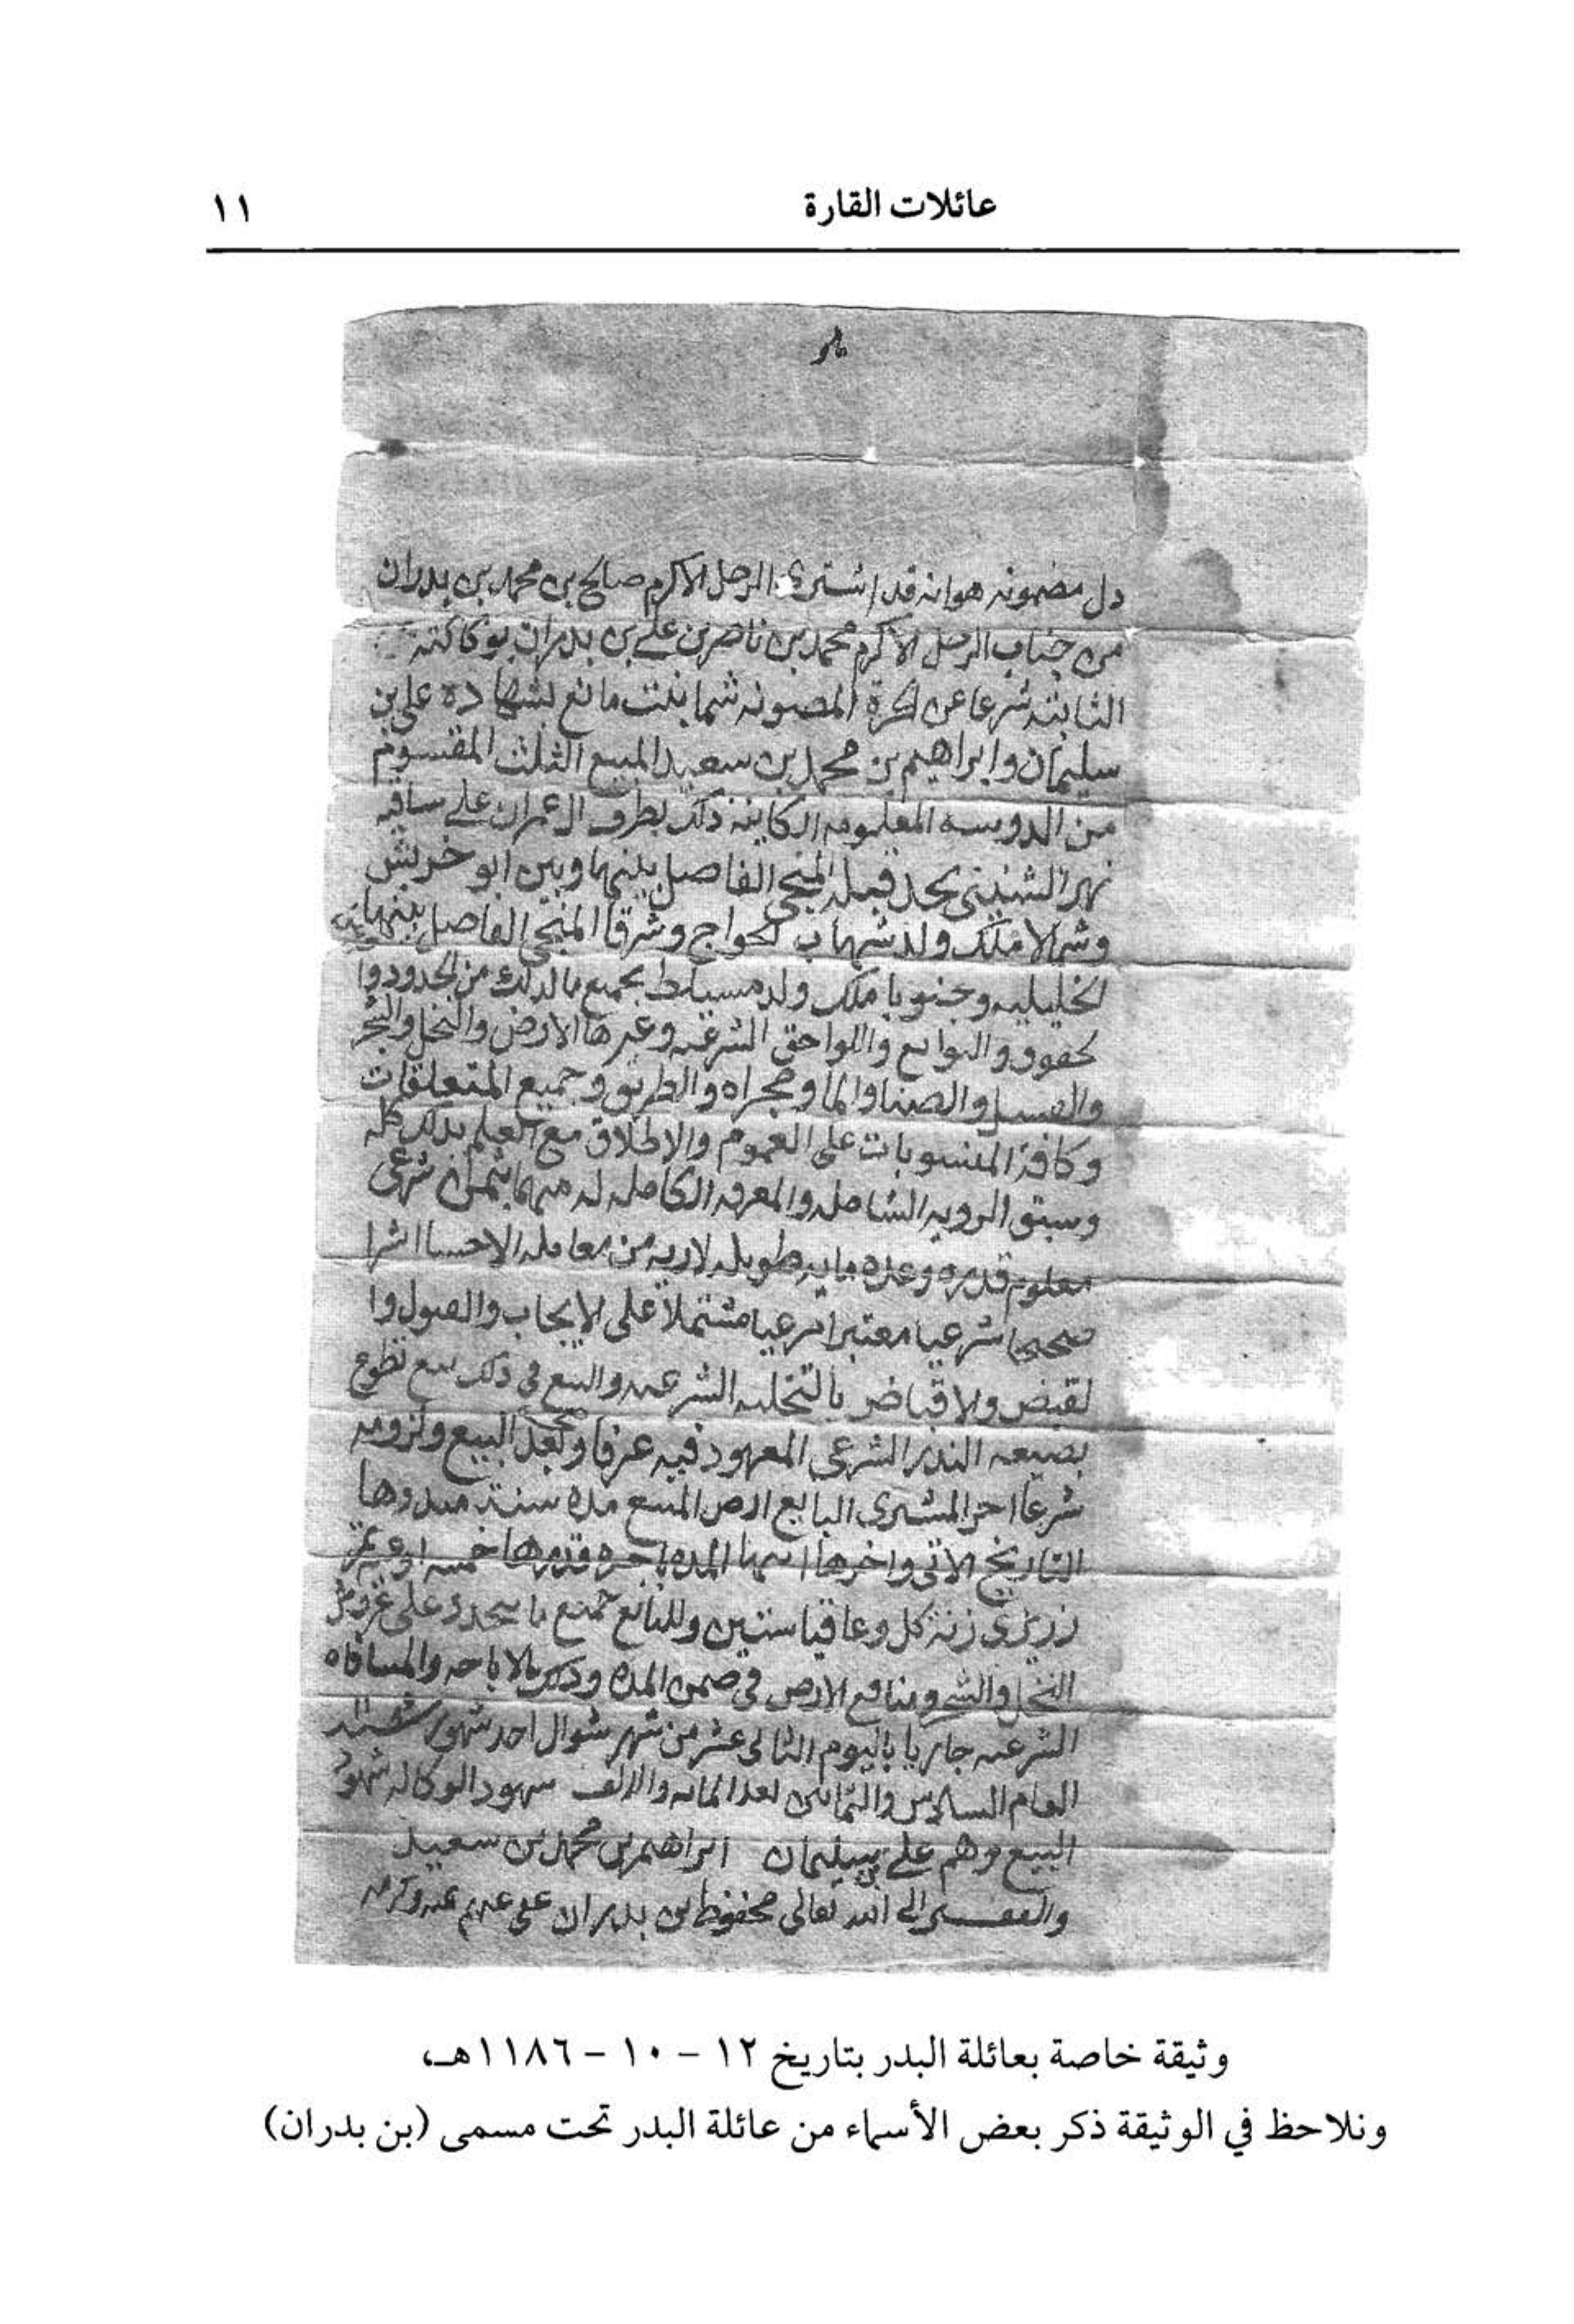 عائلات القارة
١١
دل مضمونه هو انه قد اشترى الرجل الاكرم صالح بن محمد بن بدران
من جناب الرجل الاكرم محمد بن ناصر بن علي بن بدران بوكالته
الثابته شرعا عن الحرة المصونه شما بنت مانع بشهادة علي بن
سليمان وابراهيم بن محمد بن سعيد المبيع الثلث المقسوم
من الدوسه المعلومه الكاينه ذلك بطرف ال عمران على ساقيه
نهر الشنيني يحد قبله المنجى الفاصل بينهما وبين ابو خريش
وشمالا ملك ولد شهاب الحواج وشرقا المنجى الفاصل بينهما
الخليليه وجنوبا ملك ولد مسيلط بجميع ما لذلك من الحدود وا
لحقوق والتوابع واللواحق الشرعيه وغيرها الارض والنخل والشجر
والمسيل والصنا والما ومجراه والطريق وجميع المتعلقات
وكافة المنسوبات على العموم والاطلاق مع العلم بذلك كله
وسبق الرويه الشامله والمعرفه الكامله له منهما بثمن شرعي
معلوم قدره وعده مايه طويله لاريه من معامله الاحسا شرا
صحيحا شرعيا معتبرا مرعيا مشتملا على الايجاب والقبول وا
لقبض والاقباض بالتخليه الشرعيه والبيع في ذلك بيع تطوع
بصيغه النذر الشرعي المعهود فيه عرفا وبعد البيع ولزومه
شرعا اجر المشتري البايع الارض المبيع مدة سنة مبدوها
التاريخ الاتي واخرها المده باجره قدرها خمسه
زنة كل وللبائع جميع ما يتجدد على
النخل والشجر ومنافع الارض في ضمن المده وذلك بالاباحه والمساقاه
الشرعيه جاريا باليوم الثاني عشر من شهر شوال احد شهور سنة
العام السادس والثمانين بعد المائه والالف شهود الوكاله شهود
البيع وهم علي بن سليمان ابراهيم بن محمد بن سعيد
والفقير الى الله تعالى محفوظ بن بدران عفي عنهم
وثيقة خاصة بعائلة البدر بتاريخ ١٢ - ١٠ - ١١٨٦هـ،
ونلاحظ في الوثيقة ذكر بعض الأسماء من عائلة البدر تحت مسمى (بن بدران)